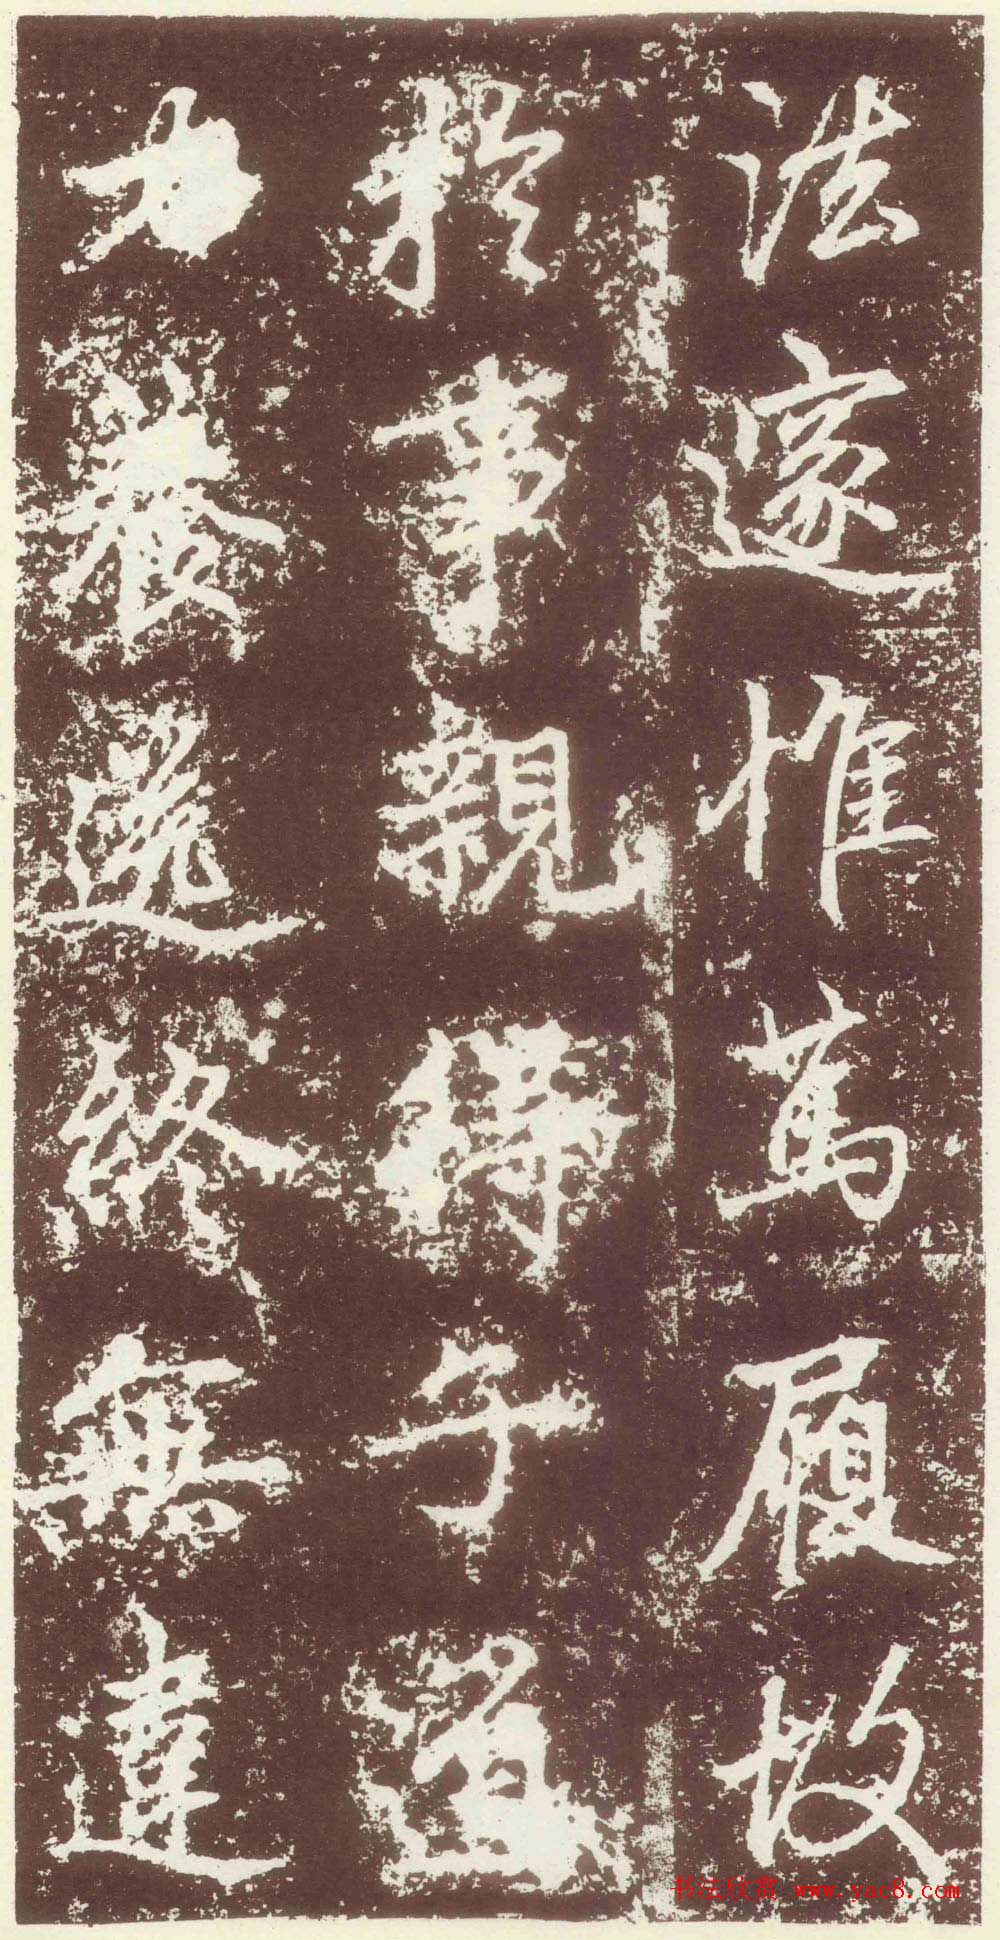 法遂惟萬履故
於事親子
力養終無違
书法欣赏 www.yac8.com